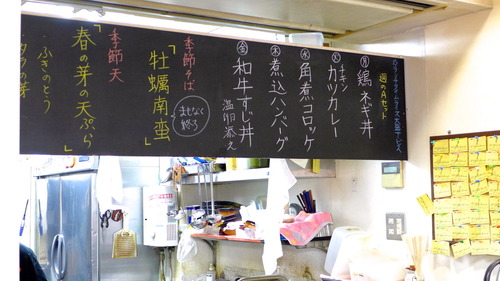 ランチタイムライス大盛サービス
週のAセット
月 鶏ネギ丼
火 チキンカツカレー
水 角煮コロッケ
木 煮込ハンバーグ
金 和牛すじ丼
温卵添え
季節そば
「牡蠣南蛮」
まもなく終了
季節天
春の芽の天ぷら」
・ふきのとう
・タラの芽